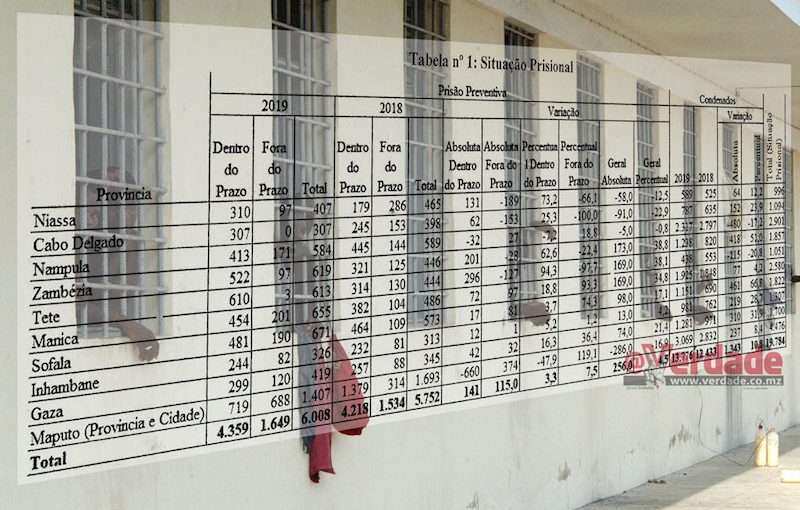 Tabela nº 1: Situação Prisional
Prisão Preventiva Condenados
2019 2018 Variação Variação
Província Dentro do Prazo Fora do Prazo Total Dentro do Prazo Fora do Prazo Total Absoluta Dentro do Prazo Absoluta Fora do Prazo Percentual Dentro do Prazo Percentual Fora do Prazo Geral Absoluta Geral Percentual 2019 2018 Absoluta Percentual Total (Situação Prisional)
Niassa 310 97 407 179 286 465 131 -189 73,2 -66,1 -58,0 -12,5 589 525 64 12,2 996
Cabo Delgado 307 0 307 245 153 398 62 -153 25,3 -100,0 -91,0 -22,9 787 635 152 23,9 1.094
Nampula 413 171 584 445 144 589 -32 27 -7,2 18,8 -5,0 -0,8 2.317 2.797 -480 -17,2 2.901
Zambézia 522 97 619 321 125 446 201 -28 62,6 -22,4 173,0 38,8 1.238 820 418 51,0 1.857
Tete 610 3 613 314 130 444 296 -127 94,3 -97,7 169,0 38,1 438 553 -115 -20,8 1.051
Manica 454 201 655 382 104 486 72 97 18,8 93,3 169,0 34,8 1.925 1.848 77 4,2 2.580
Sofala 481 190 671 464 109 573 17 81 3,7 74,3 98,0 17,1 1.151 690 461 66,8
Inhambane 244 82 326 232 81 313 12 1 5,2 1,2 13,0 4,2 762 219 1.307
Gaza 299 120 419 257 88 345 42 32 16,3 36,4 74,0 21,4 1.281 971 310 1.700
Maputo (Província e Cidade) 719 688 1.407 1.379 314 1.693 -660 374 -47,9 119,1 -286,0 3.069 2.832 237 8,4 4.476
Total 4.359 1.649 6.008 4.218 1.534 5.752 141 115,0 3,3 7,5 256,0 4,5 13.776 12.433 1.343 10,8 19.784
@Verdade
www.verdade.co.mz